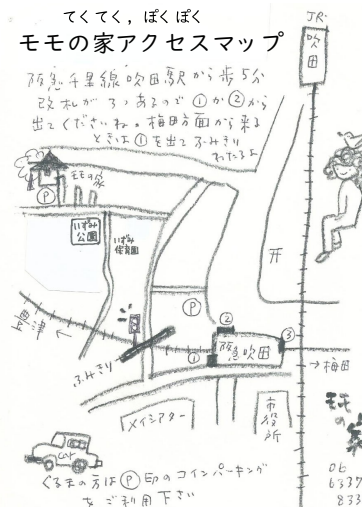 てくてく，ぽくぽく
モモの家アクセスマップ
阪急千里線吹田駅から歩5分
改札が3つあるので①か②から
出てくださいね。梅田方面から来る
ときは①を出てふみきり
わたるよ
JR
吹田
モモの家
P
いずみ
公園
いずみ
保育園
P
②
③
阪急吹田
①
豊津
←
ふみきり
→梅田
メイシアター
市役所
モモの家
06
6337
833
くるまの方はⓅ印のコインパーキング
をご利用下さい